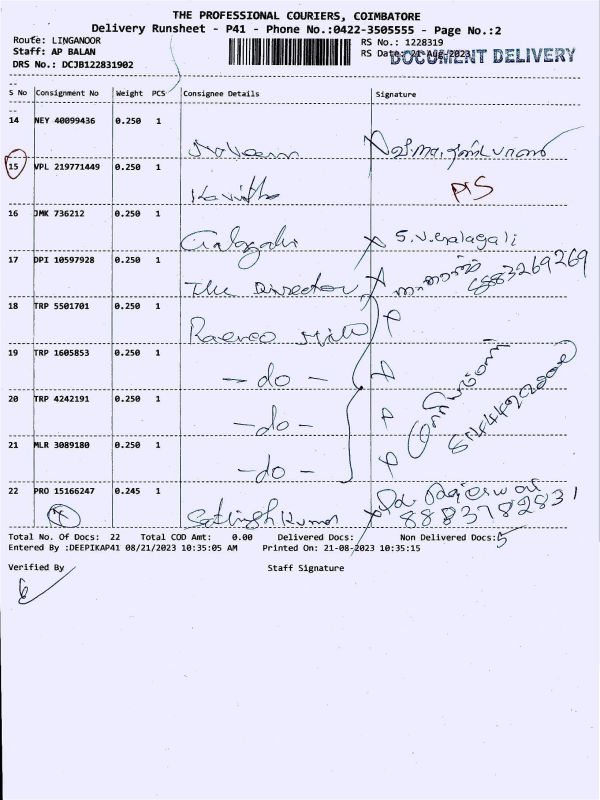 THE PROFESSIONAL COURIERS, COIMBATORE
Delivery Runsheet - P41 - Phone No.:0422-3505555 - Page No.:2
Route: LINGANOOR
RS No.: 1228319
Staff: AP BALAN
RS Date: 21-Aug-2023
DOCUMENT DELIVERY
DRS No.: DCJB122831902
S No Consignment No Weight PCS Consignee Details Signature
14 NEY 40099436 0.250 1 Naveen
15 VPL 219771449 0.250 1 Kavitha
16 JMK 736212 0.250 1 Galagali S.V.Galagali
17 DPI 10597928 0.250 1 The Director 6883269269
18 TRP 5501701 0.250 1
19 TRP 1605853 0.250 1 - do -
20 TRP 4242191 0.250 1 - do -
21 MLR 3089180 0.250 1 - do -
22 PRO 15166247 0.245 1 Sathish Kumar 8883782831
Total No. Of Docs: 22 Total COD Amt: 0.00 Delivered Docs: Non Delivered Docs: 5
Entered By :DEEPIKAP41 08/21/2023 10:35:05 AM Printed On: 21-08-2023 10:35:15
Verified By Staff Signature